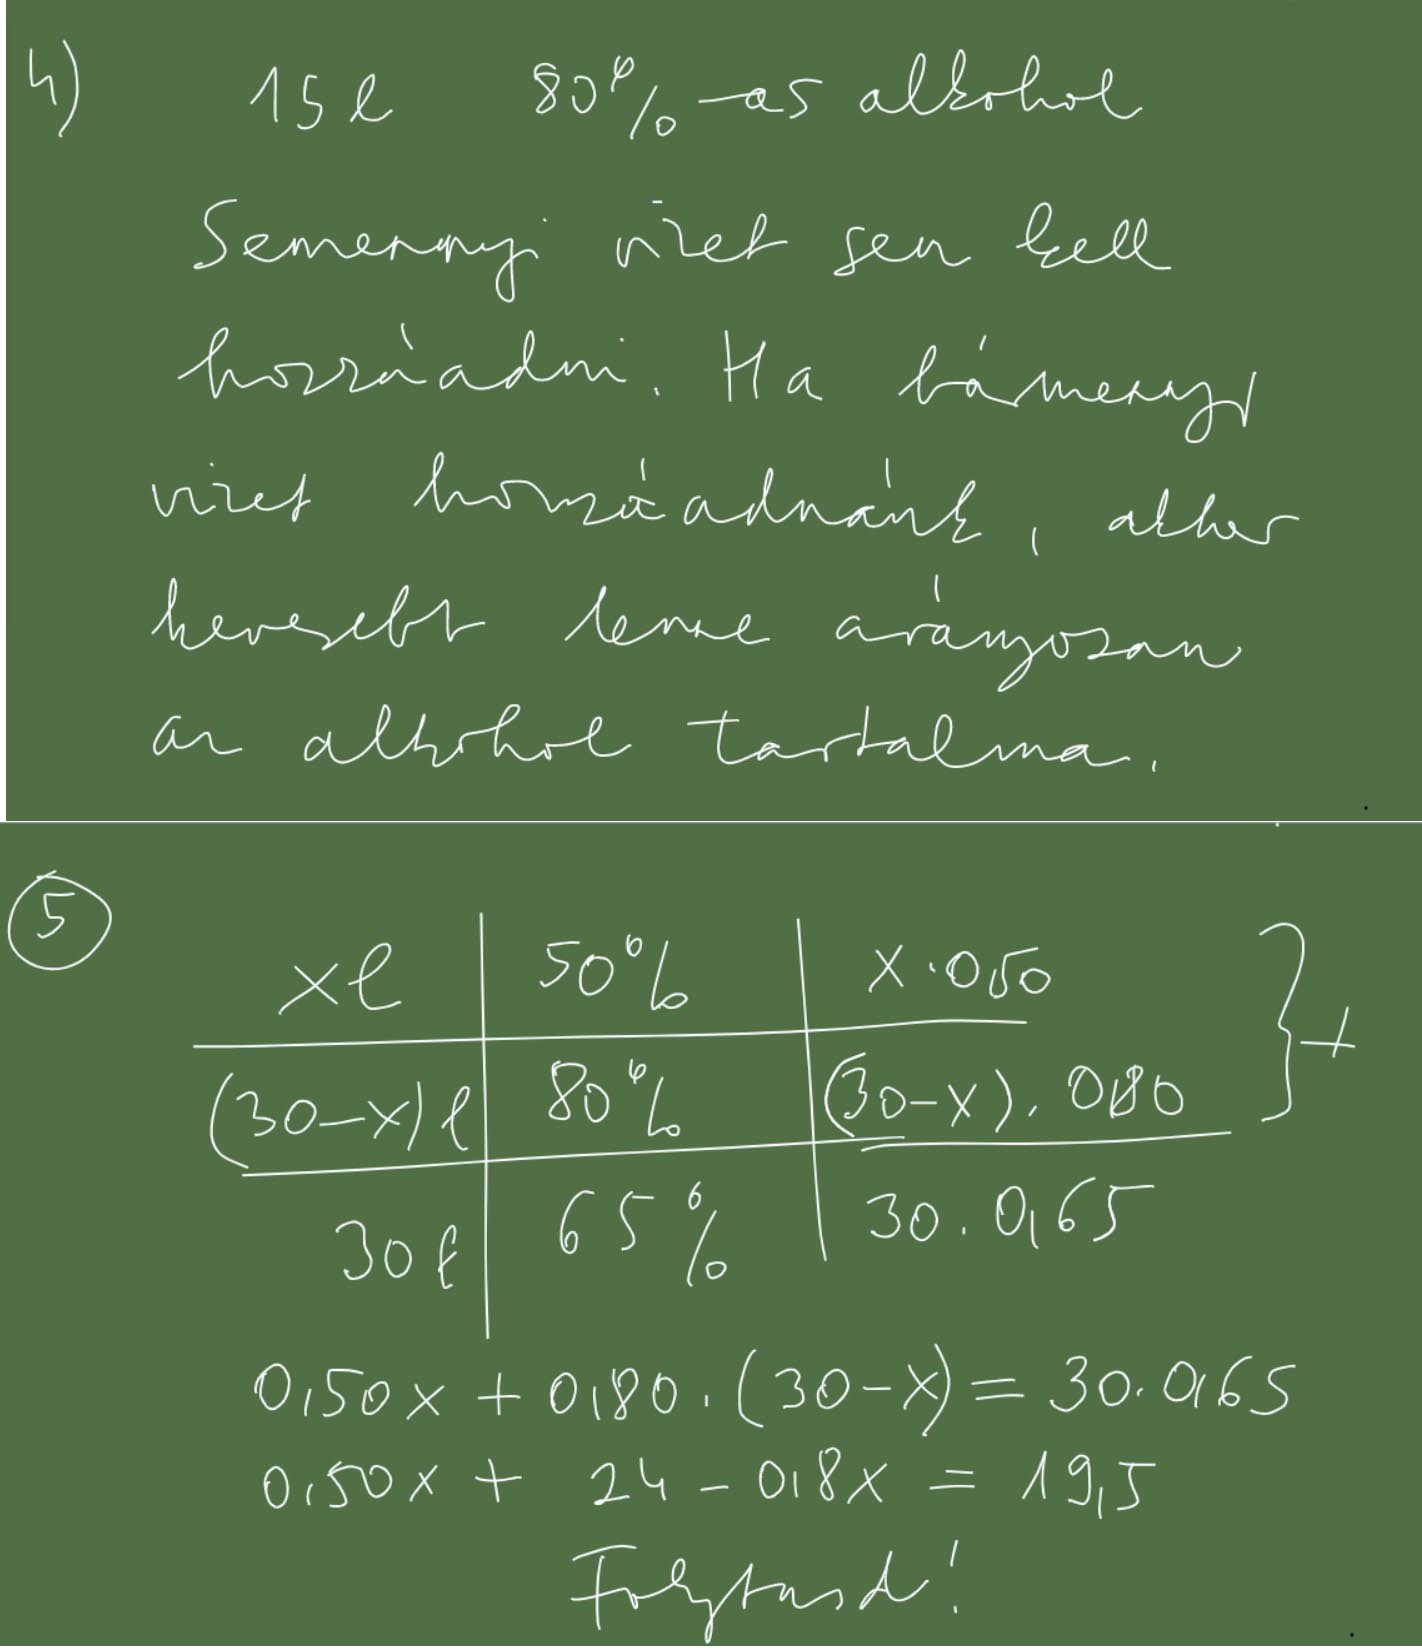 4) 15 l 80%-as alkohol
Semennyi vizet sem kell
hozzáadni. Ha bármennyi
vizet hozzáadnánk, akkor
kevesebb lenne arányosan
az alkohol tartalma.
5
x l 50% x·0,50
(30-x) l 80% (30-x)·0,80 } +
30 l 65% 30·0,65
0,50x + 0,80·(30-x) = 30·0,65
0,50x + 24 - 0,8x = 19,5
Folytasd!